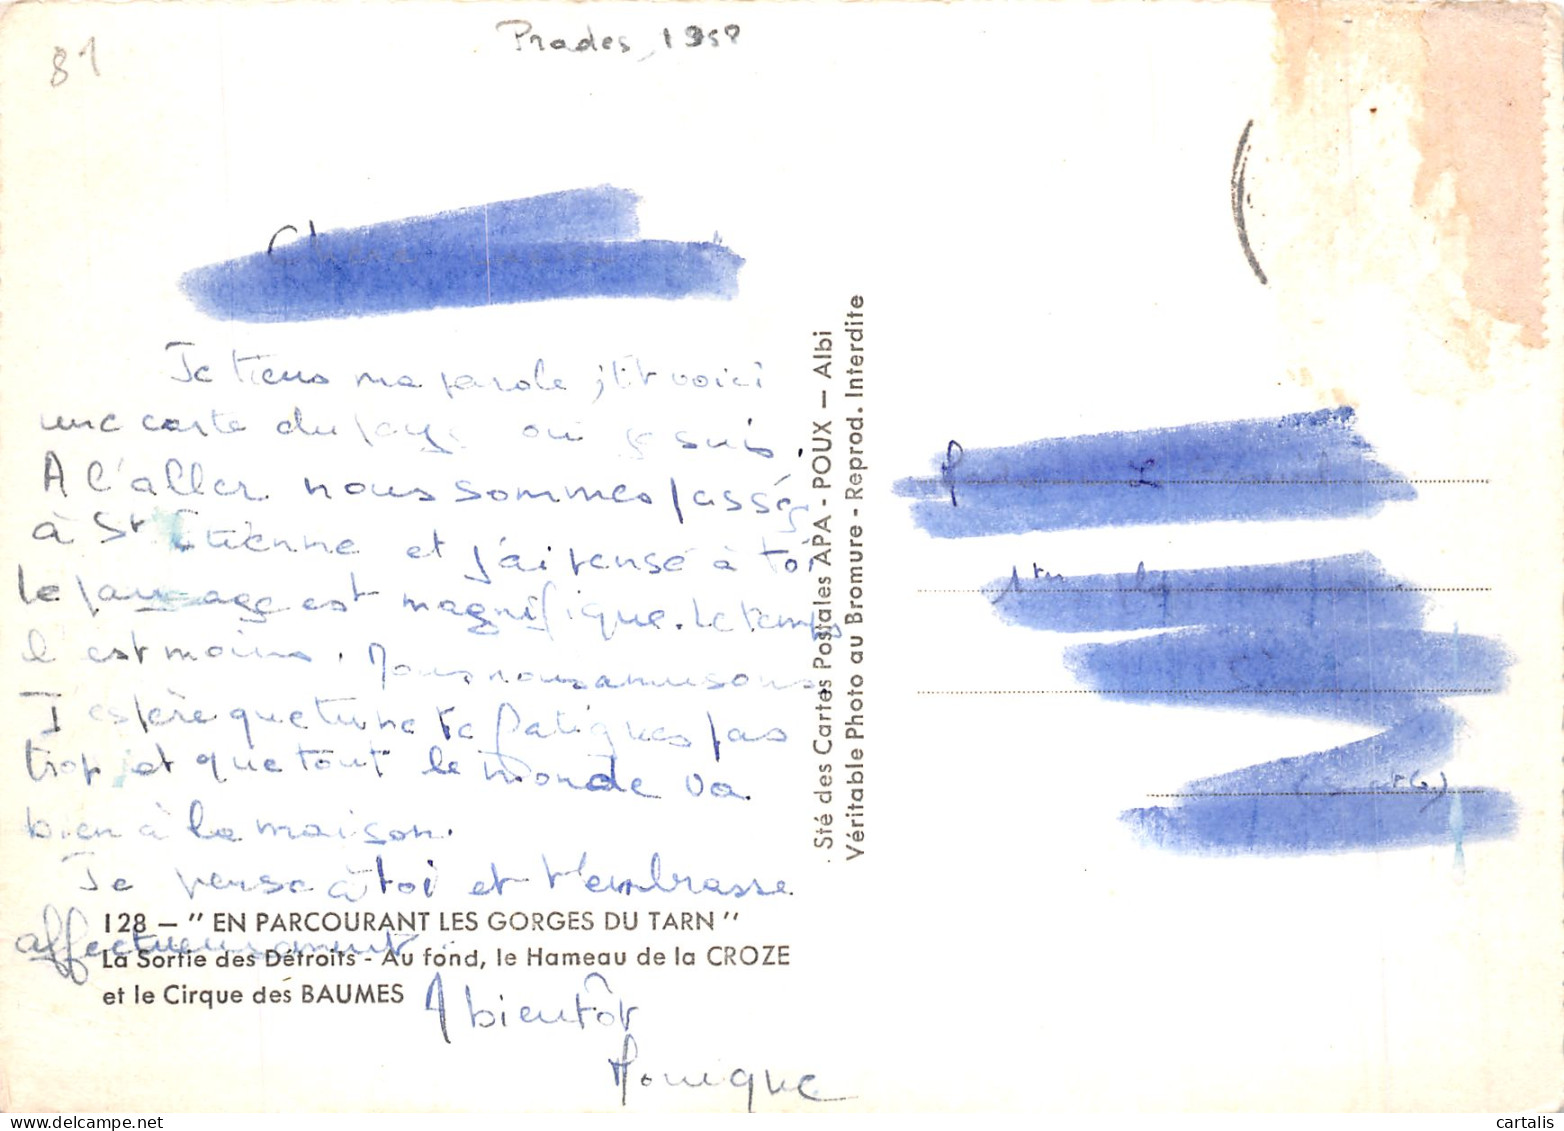 81
Prades, 1958
Chère
Je tiens ma parole, et voici
une carte du pays où je suis.
A l'aller nous sommes passés
à St Etienne et j'ai pensé à toi
le paysage est magnifique. Le temps
l'est moins. Nous nous amusons
J'espère que tu ne te fatigues pas
trop, et que tout le monde va
bien à la maison.
Je pense à toi et t'embrasse
affectueusement.
A bientôt
Monique
128 – " EN PARCOURANT LES GORGES DU TARN "
La Sortie des Détroits - Au fond, le Hameau de la CROZE
et le Cirque des BAUMES
Sté des Cartes Postales APA - POUX – Albi
Véritable Photo au Bromure - Reprod. Interdite
cartalis